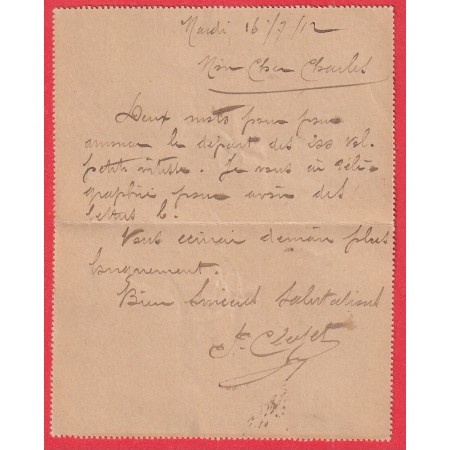 Mardi 16/7/12
Mon Cher Charles
Deux mots pour pour
annoncer le départ des 200 vol.
petite vitesse. Je vous ai télé-
graphié pour avoir des
Vous écrirai demain plus
longuement.
Bien Sincères Salutations